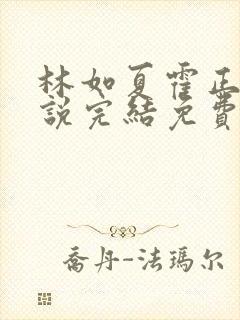 林如夏霍正
說完結免費
喬丹-法瑪尔